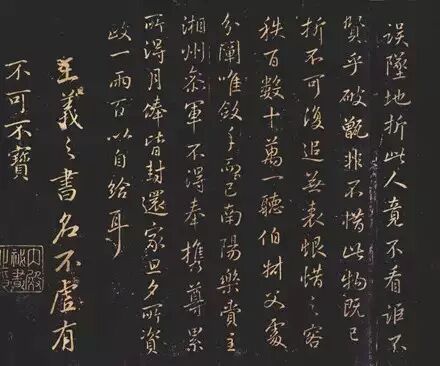 誤墜地折此人竟不看詎不
賢乎破甑非不惜此物既已
折不可復追無哀恨惜之容
秩百數十萬一聽伯父處
分唯斂手而已南陽樂主
湘州參軍不得奉携尊累
所得月俸皆封還家旦夕所資
政一兩百以自給耳
王羲之書名不虛有
不可不寶
內殿秘書之印